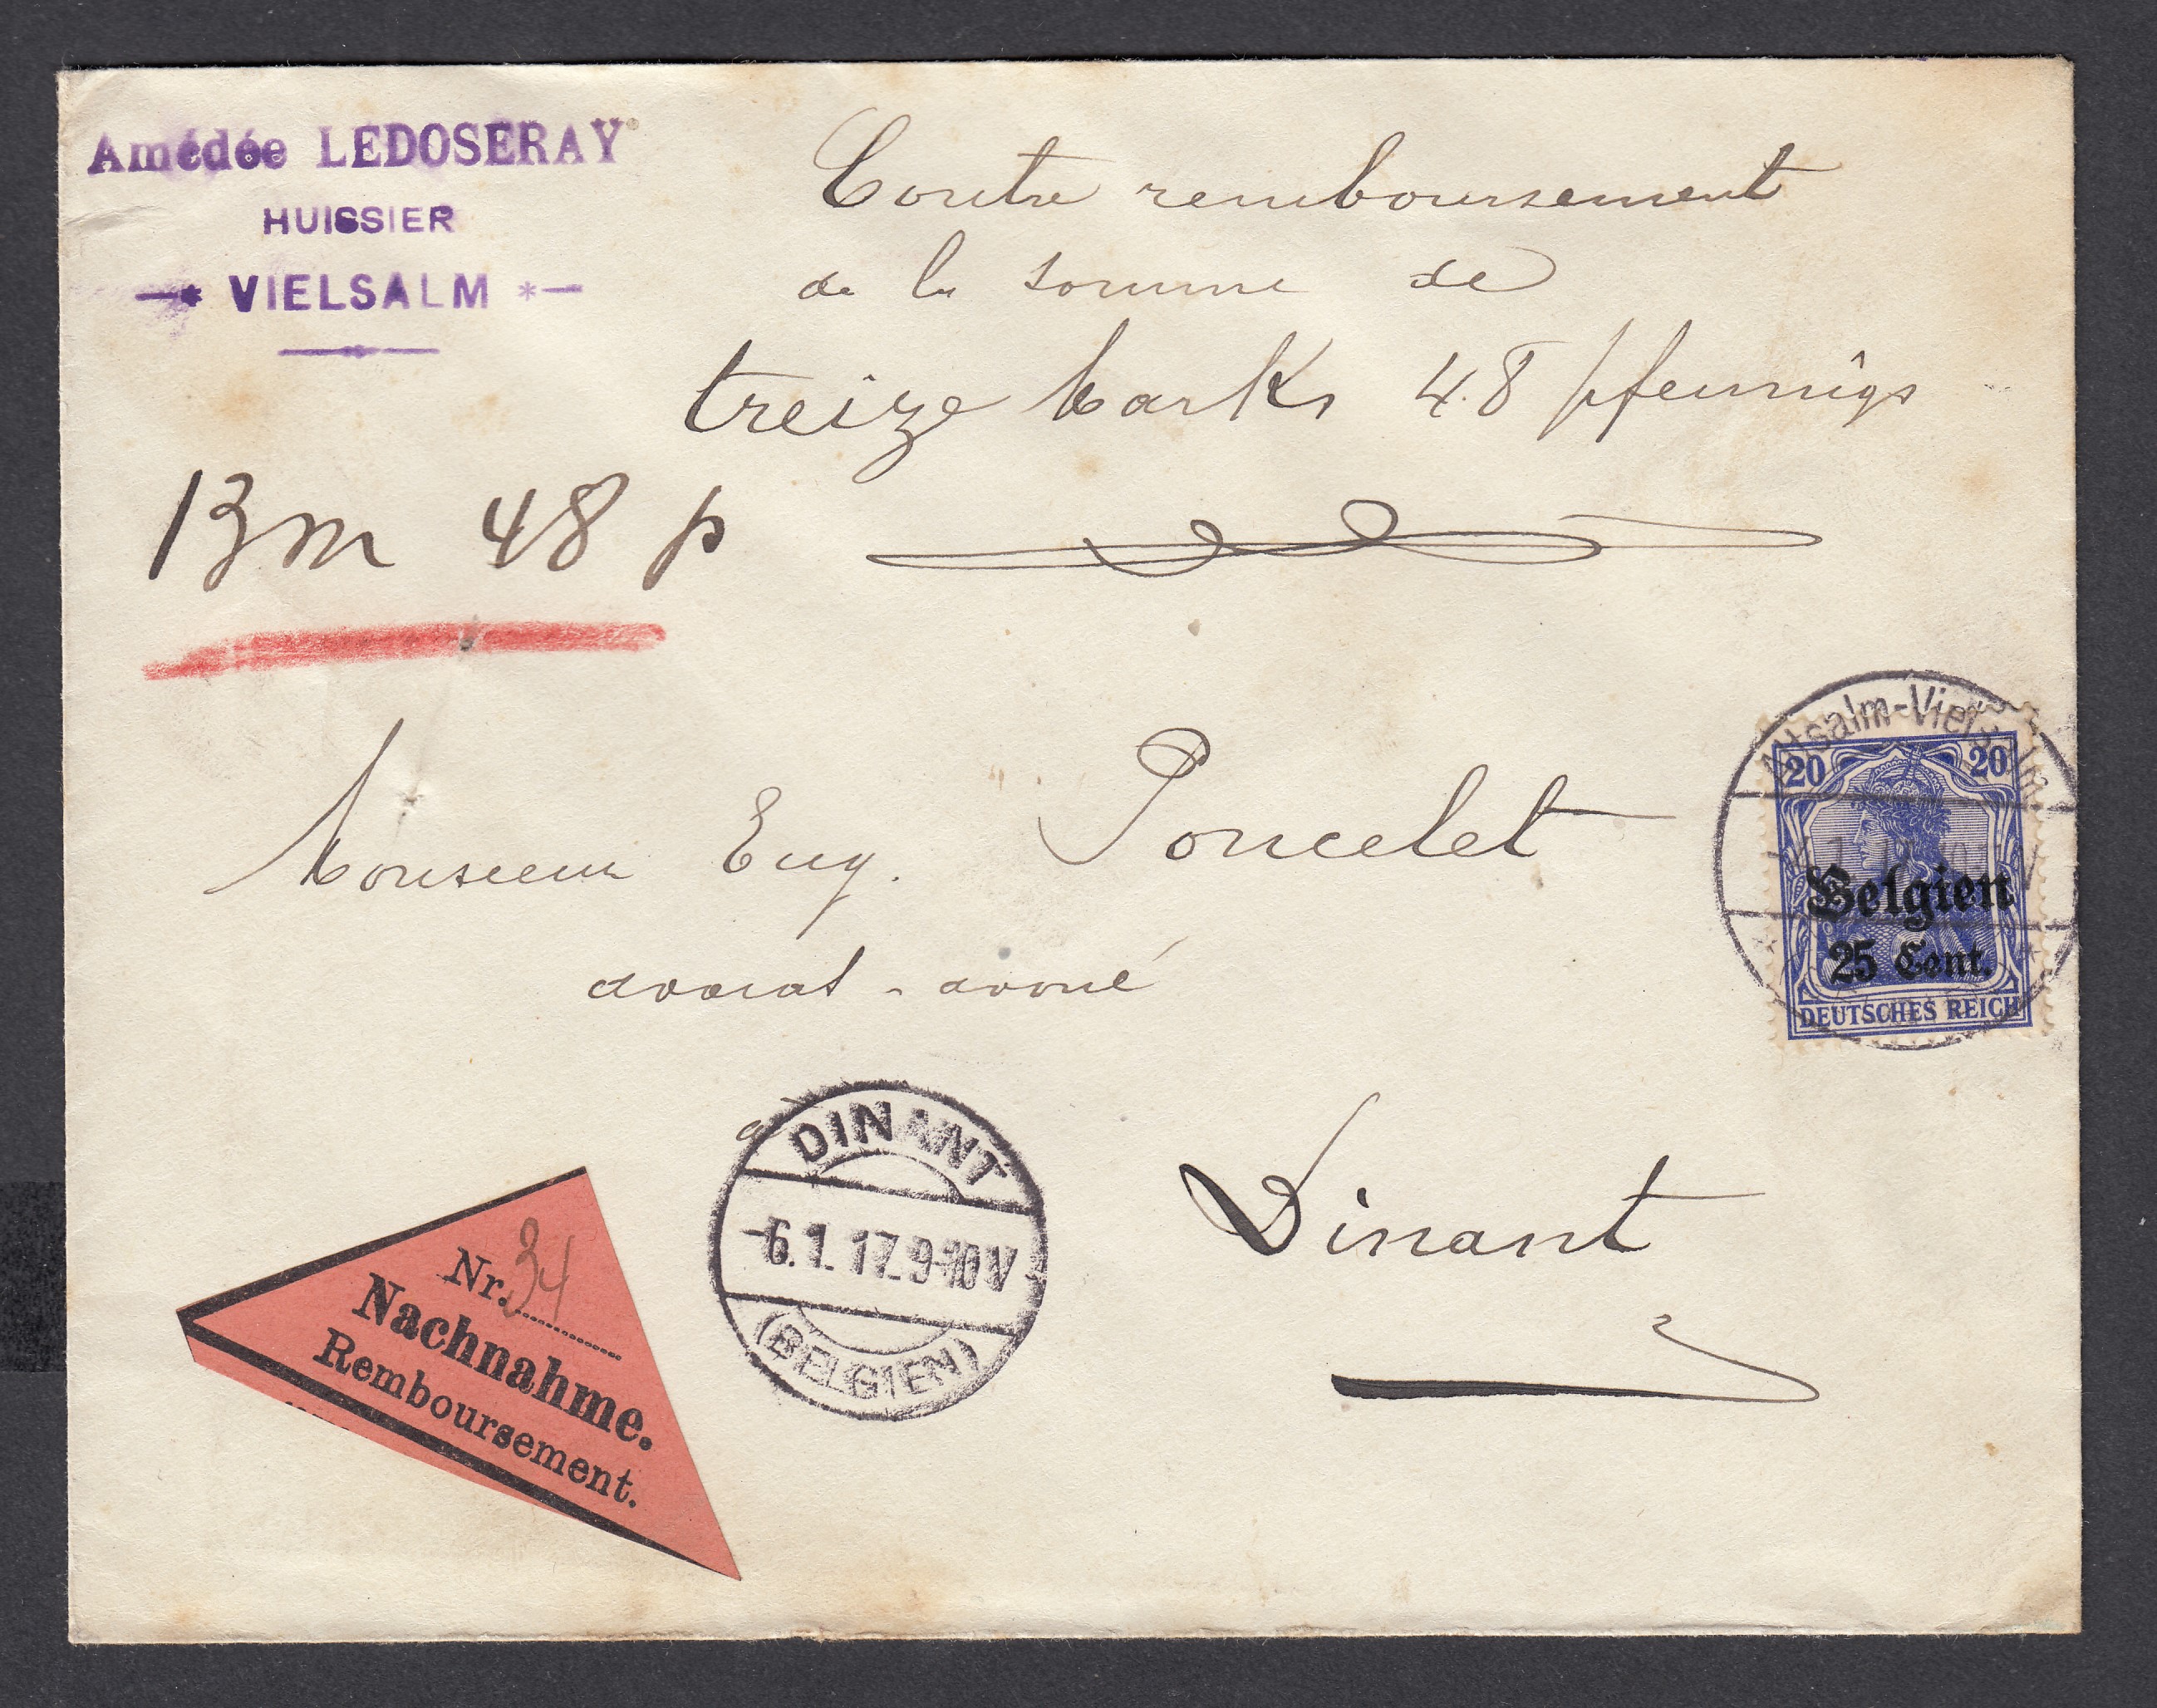 Amédée LEDOSERAY
HUISSIER
VIELSALM
Contre remboursement
de la somme de
treize Marks 48 pfennigs
13 m 48 p
Monsieur Eug. Poncelet
avocat-avoué
Dinant
Altsalm-Vielsalm
20 20
Belgien
25 Cent.
DEUTSCHES REICH
DINANT
-6.1.17.9-10V
(BELGIEN)
Nr. 34
Nachnahme.
Remboursement.